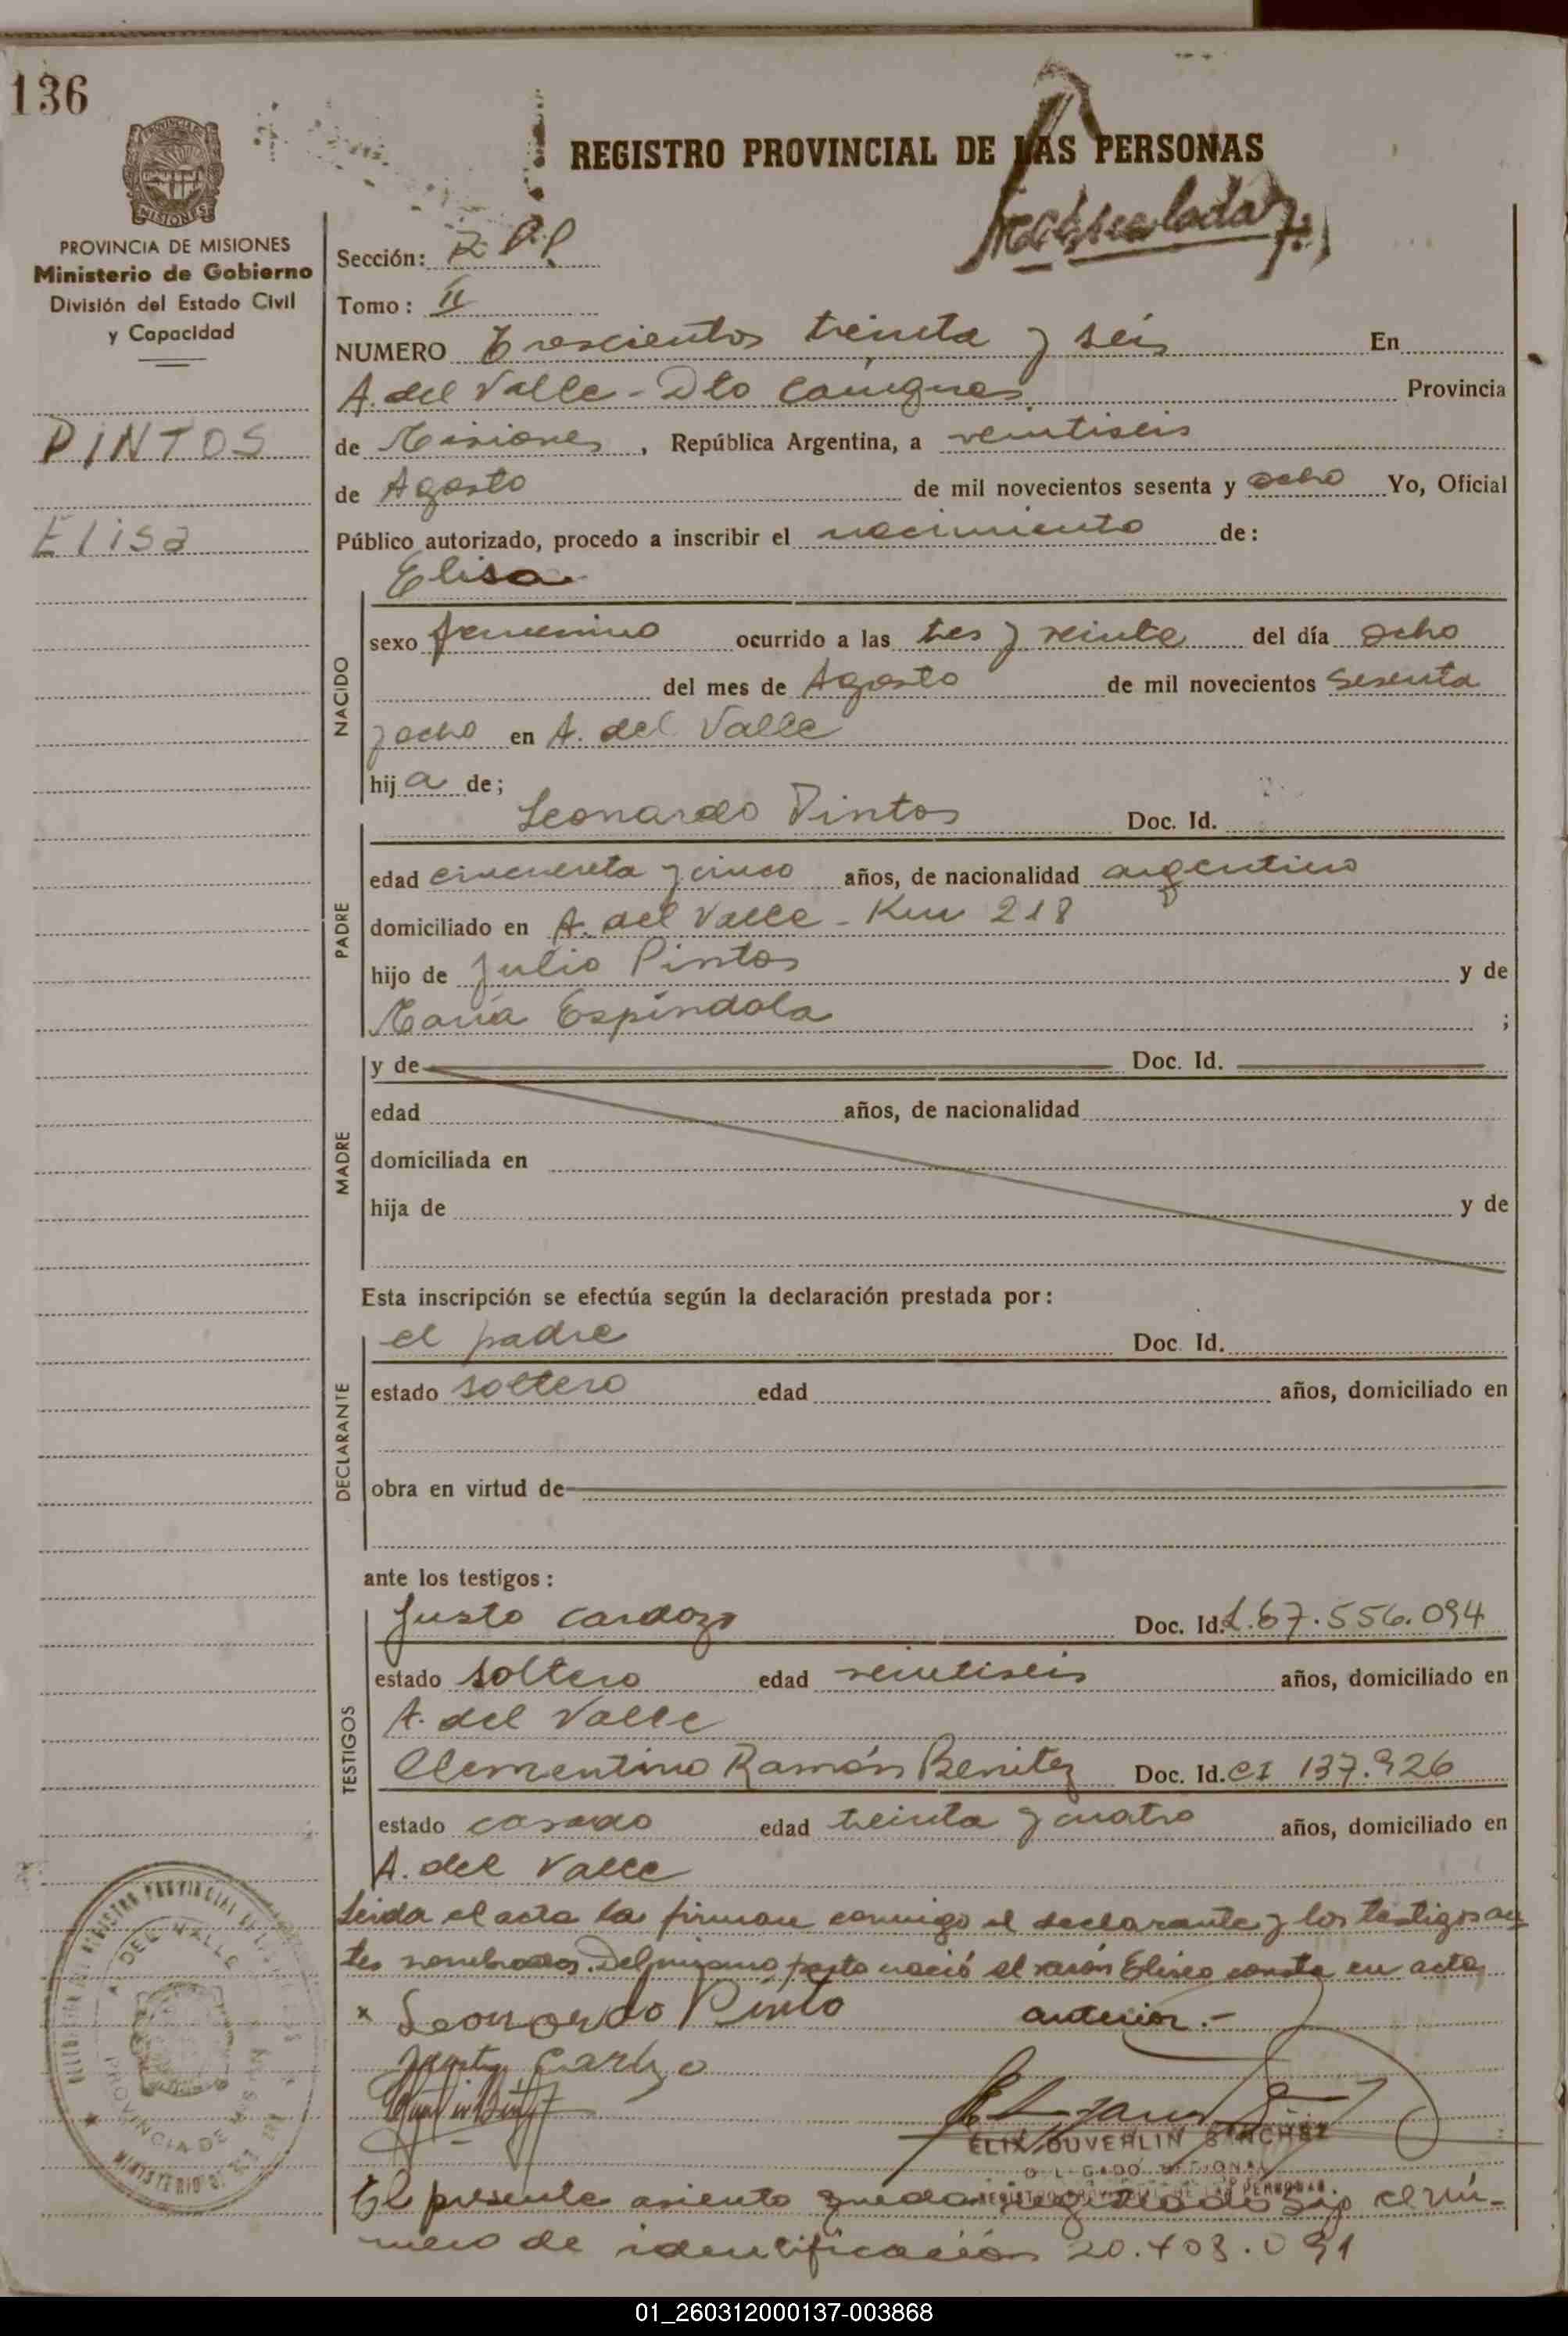 136
REGISTRO PROVINCIAL DE LAS PERSONAS
PROVINCIA DE MISIONES
MISIONES
PROVINCIA DE MISIONES
Ministerio de Gobierno
División del Estado Civil
y Capacidad
PINTOS
Elisa
Sección:
Tomo: II
NUMERO Trescientos treinta y seis En
A. del Valle - Dto Cainguas Provincia
de Misiones, República Argentina, a veintiseis
de Agosto de mil novecientos sesenta y ocho Yo, Oficial
Público autorizado, procedo a inscribir el nacimiento de:
Elisa
NACIDO
sexo femenino ocurrido a las tres y veinte del día ocho
del mes de Agosto de mil novecientos sesenta
y ocho en A. del Valle
hija de;
PADRE
Leonardo Pintos Doc. Id.
edad cincuenta y cinco años, de nacionalidad argentino
domiciliado en A. del Valle - Km 218
hijo de Julio Pintos y de
María Espíndola ;
MADRE
y de Doc. Id.
edad años, de nacionalidad
domiciliada en
hija de y de
Esta inscripción se efectúa según la declaración prestada por:
DECLARANTE
el padre Doc. Id.
estado soltero edad años, domiciliado en
obra en virtud de
ante los testigos:
TESTIGOS
Justo Cardozo Doc. Id. 67.556.094
estado soltero edad veintiseis años, domiciliado en
A. del Valle
Clementino Ramón Benitez Doc. Id. CI 137.926
estado casado edad treinta y cuatro años, domiciliado en
A. del Valle
Leida el acta la firman conmigo el declarante y los testigos an
tes nombrados. Del mismo parto nació el varón Eliseo consta en acta
anterior.-
x Leonardo Pinto
ELIX DUVERLIN SANCHEZ
REGISTRO PROVINCIAL DE LAS PERSONAS
A DEL VALLE
PROVINCIA DE MISIONES
El presente asiento queda registrado bajo el nú-
mero de identificación 20.403.091
01_260312000137-003868